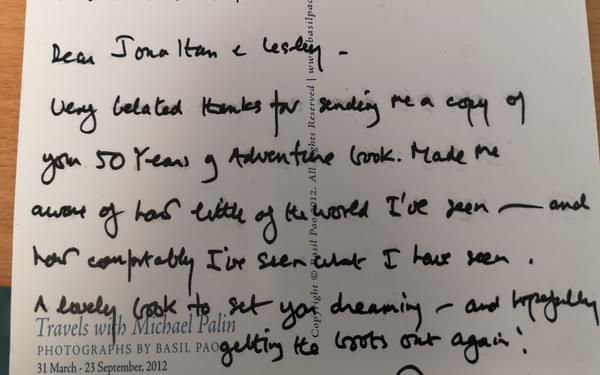 Dear Jonathan & Lesley –
Very belated thanks for sending me a copy of
your 50 Years of Adventure book. Made me
aware of how little of the world I've seen — and
how comfortably I've seen what I have seen.
A lovely book to set you dreaming – and hopefully
getting the boots out again!
Travels with Michael Palin
PHOTOGRAPHS BY BASIL PAO
31 March - 23 September, 2012
Copyright © Basil Pao 2012. All Rights Reserved | www.basilpao